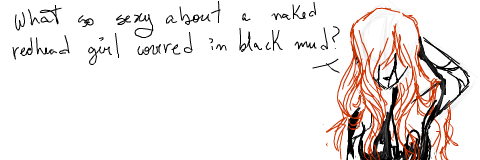 What so sexy about a naked
redhead girl coverred in black mud?